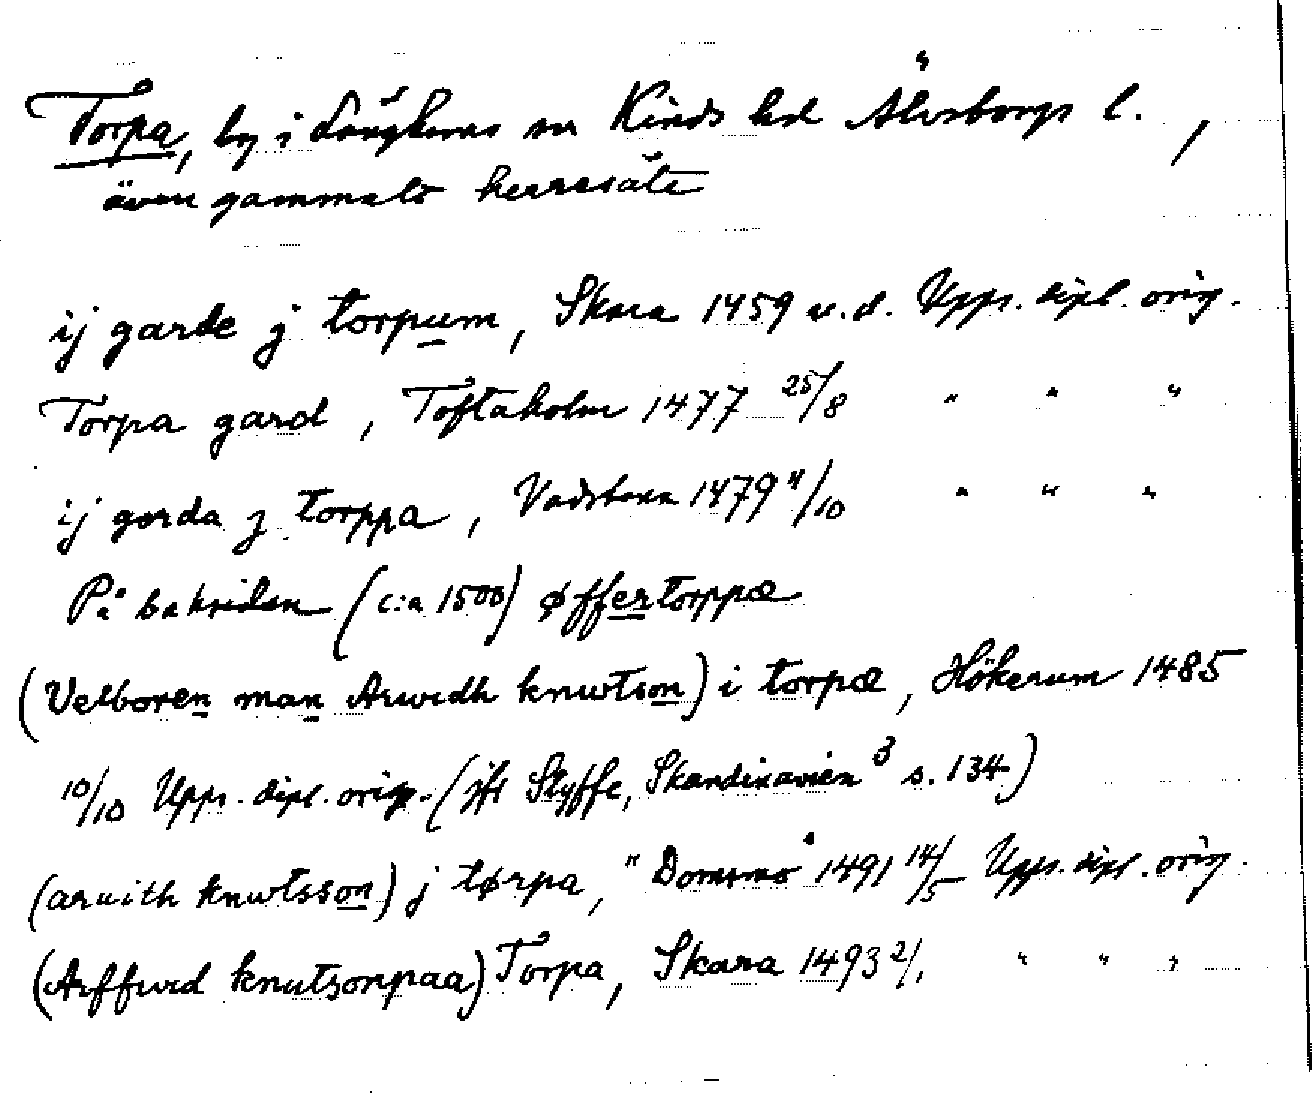 Torpa, by i Länghems sn Kinds hd Älvsborgs l.,
även gammalt herresäte
ij garde j torpum, Skara 1459 u.d. Upps. dipl. orig.
Torpa gard, Toftaholm 1477 25/8 " " "
ij gorda j torppa, Vadstena 1479 4/10 " " "
På baksidan (c:a 1500) øffertorppæ
(Velboren man Arwidh knwtson) i torpæ, Hökerum 1485
10/10 Upps. dipl. orig. (jfr Styffe, Skandinavien 3 s. 134)
(arwith knwtsson) j tørpa, "Domsmo" 1491 14/5 Upps. dipl. orig.
(Arffwid knutzonpaa) Torpa, Skara 1493 2/1 " " "